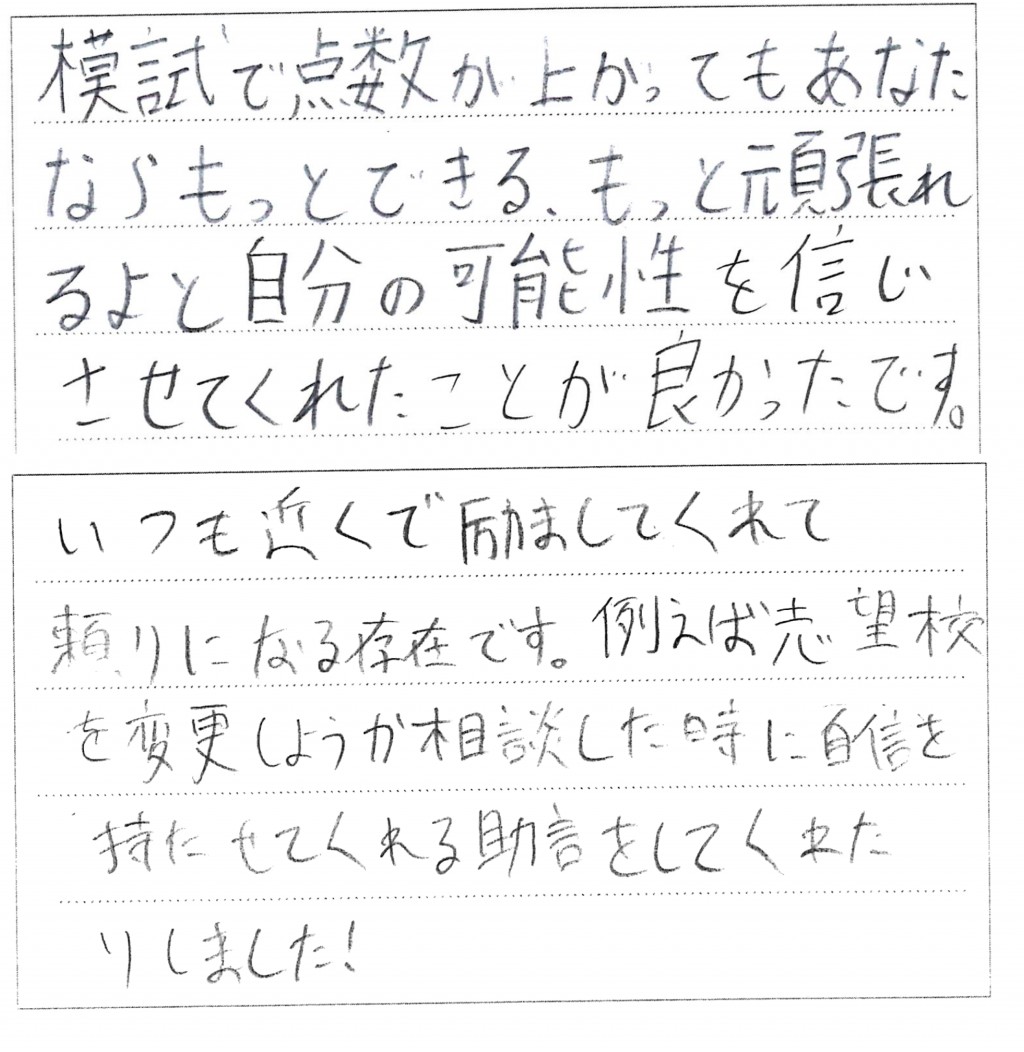 模試で点数が上がってもあなた
ならもっとできる、もっと頑張れ
るよと自分の可能性を信じ
させてくれたことが良かったです。
いつも近くで励ましてくれて
頼りになる存在です。例えば志望校
を変更しようか相談した時に自信を
持たせてくれる助言をしてくれた
りしました!